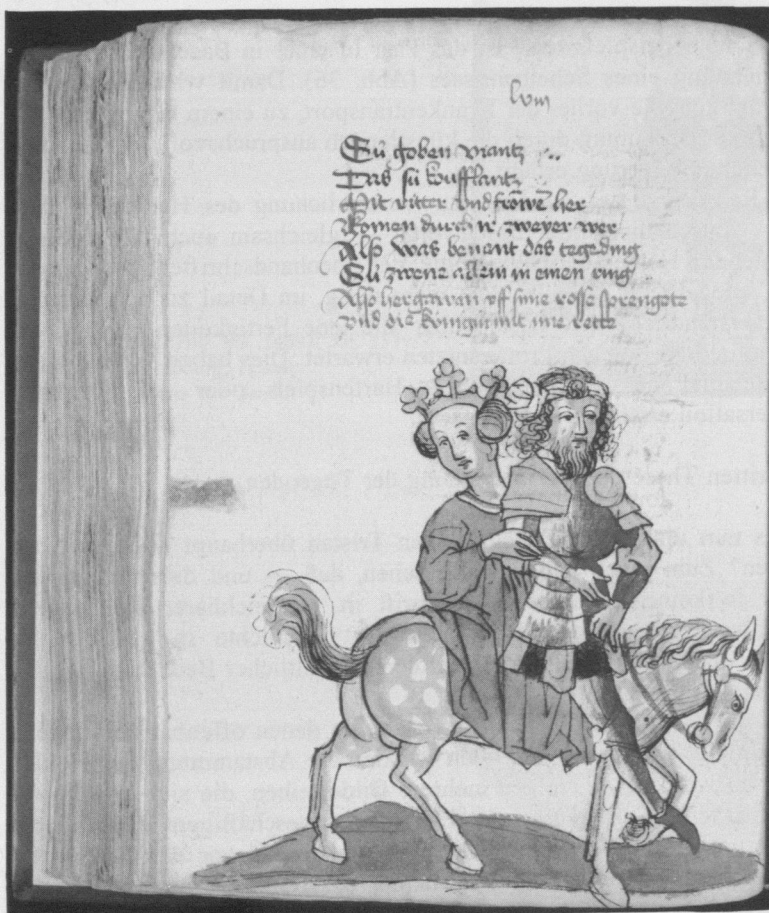 Sü goben viantz
Das sü koufflantz
Mit ritter vnd frowe her
Komen durch ir zweyer wer
Also was benant das tegeding
Sü zwene allein in einen ring
Also her gawan vff sime rosse sprengete
vnd die künigin mit ime rette